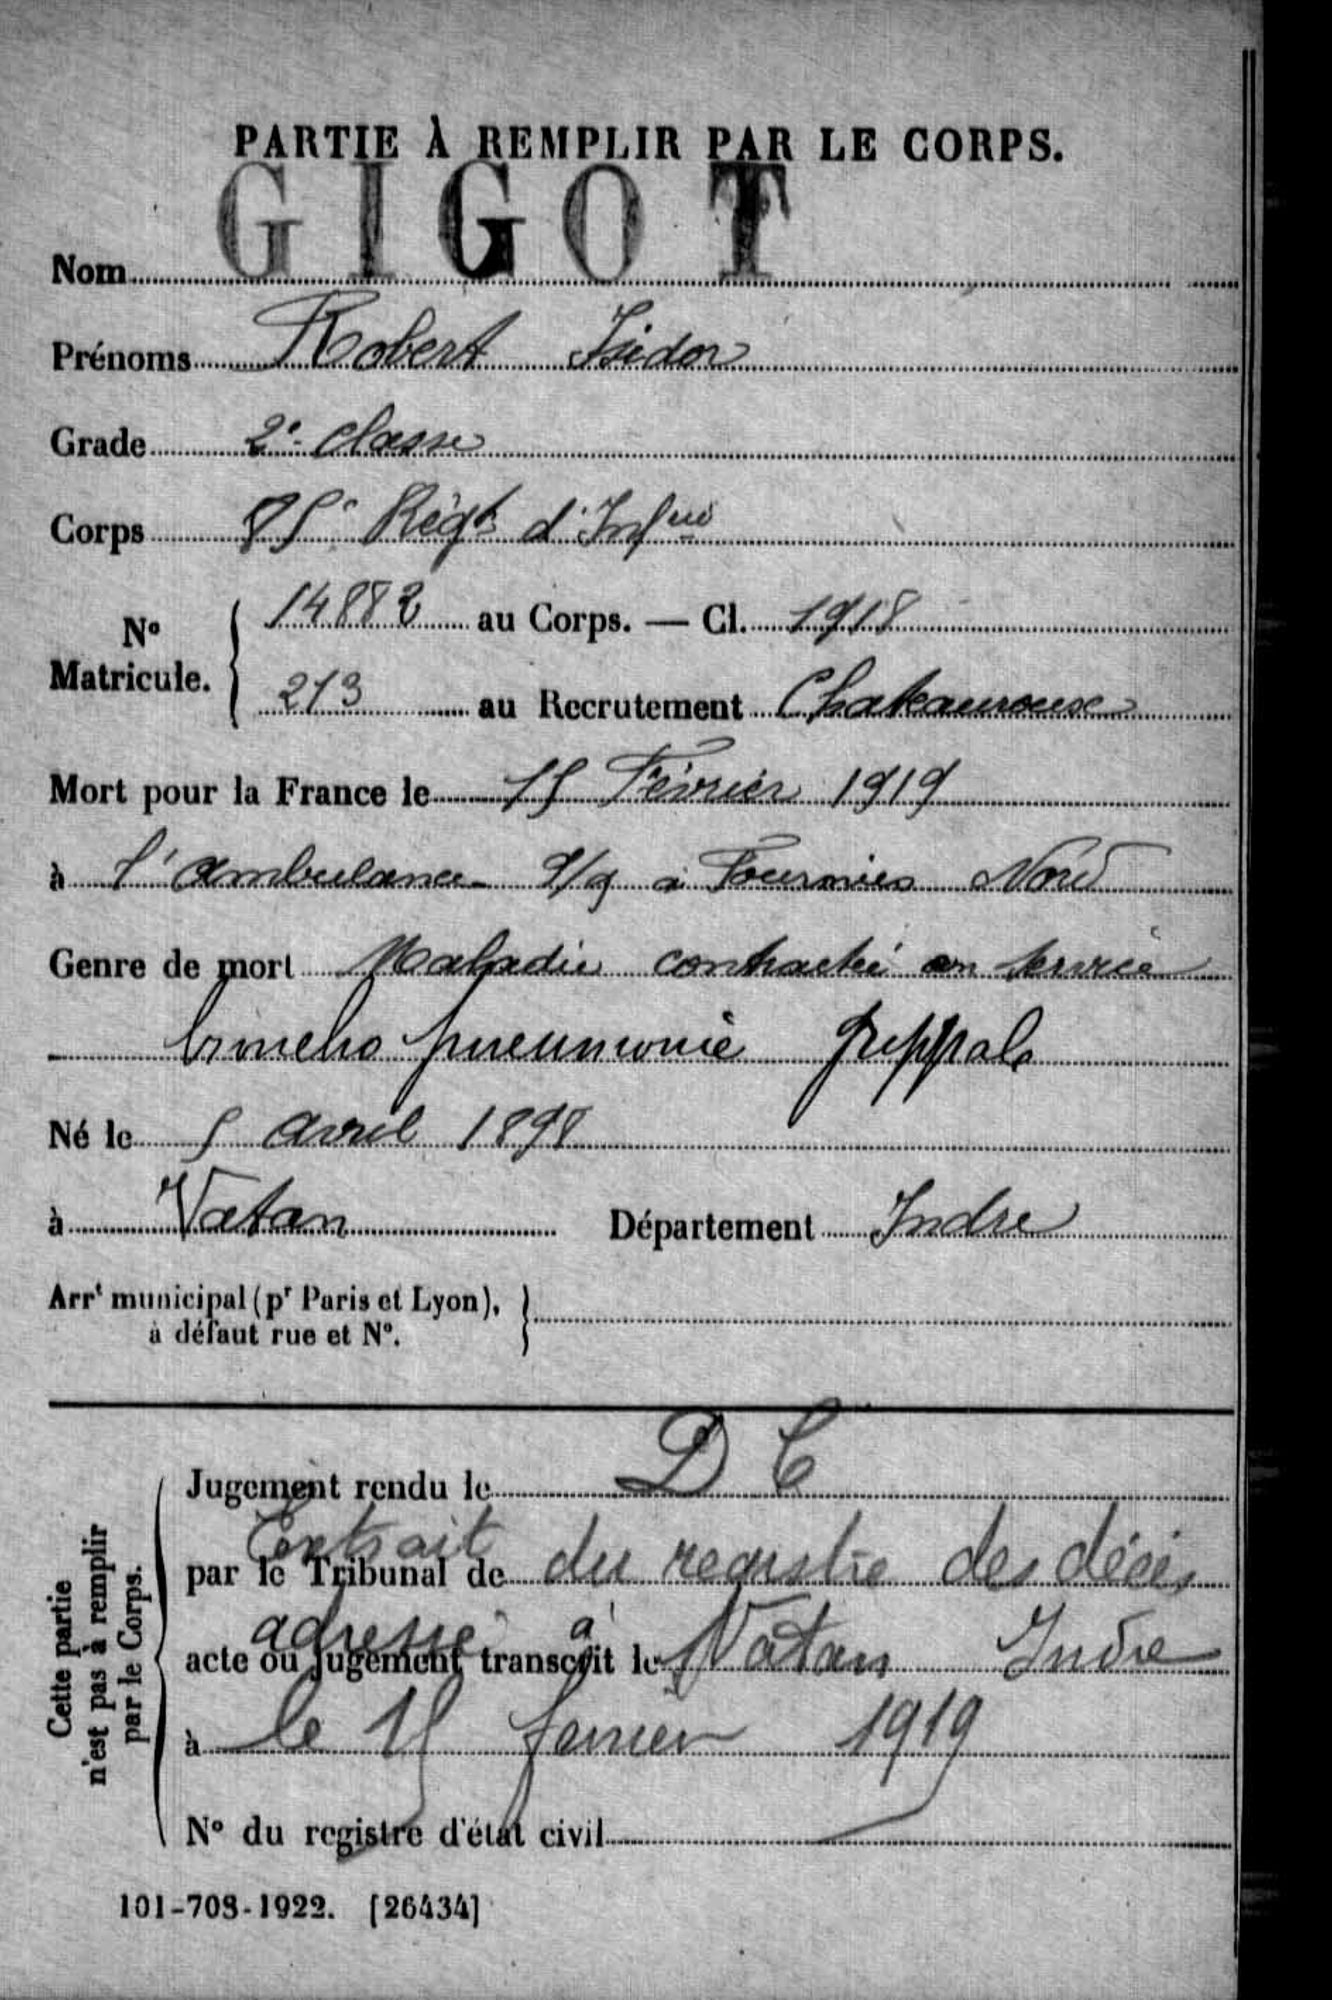 PARTIE À REMPLIR PAR LE CORPS.
Nom GIGOT
Prénoms Robert Isidor
Grade 2e classe
Corps 85e Régt d'Infrie
No Matricule. 14882 au Corps. — Cl. 1918
213 au Recrutement Chateauroux
Mort pour la France le 15 Février 1919
à l'ambulance 9/9 à Fourmies Nord
Genre de mort Maladie contracté en service
broncho pneumonie grippale
Né le 5 avril 1898
à Vatan Département Indre
Arrt municipal (pr Paris et Lyon),
à défaut rue et No.
Cette partie
n'est pas à remplir
par le Corps.
Jugement rendu le D C
Extrait
par le Tribunal de du registre des décès
adressé à
acte ou jugement transcrit le Vatan Indre
à le 15 fevrier 1919
No du registre d'état civil
101-708-1922. [26434]